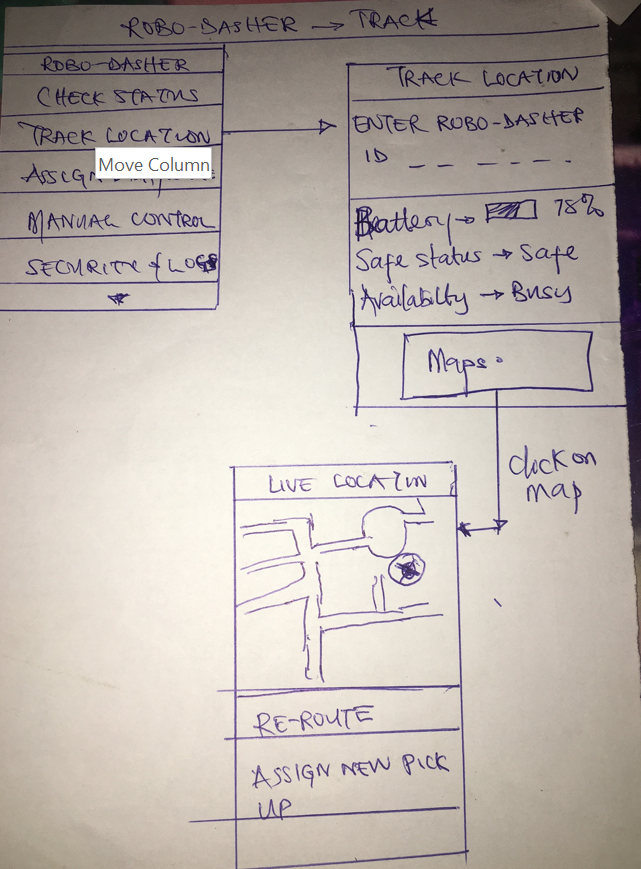 ROBO-DASHER → TRACK
ROBO-DASHER
CHECK STATUS
TRACK LOCATION
Move Column
MANUAL CONTROL
SECURITY & LOGS
TRACK LOCATION
ENTER ROBO-DASHER
ID _ _ _ _ _ .
Battery → 78%
Safe status → Safe
Availabilty → Busy
Maps.
click on
map
LIVE LOCATIN
RE-ROUTE
ASSIGN NEW PICK
UP